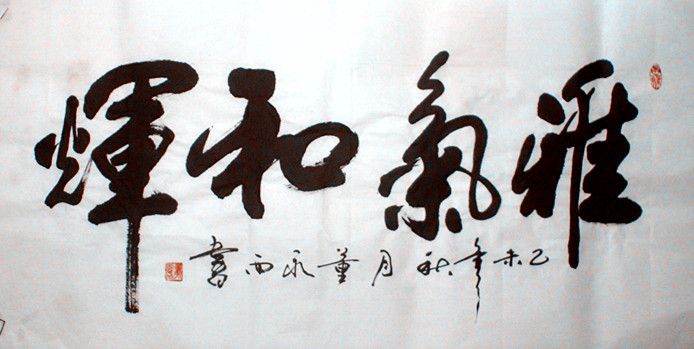 雅氣和輝
乙未年秋月董永西書